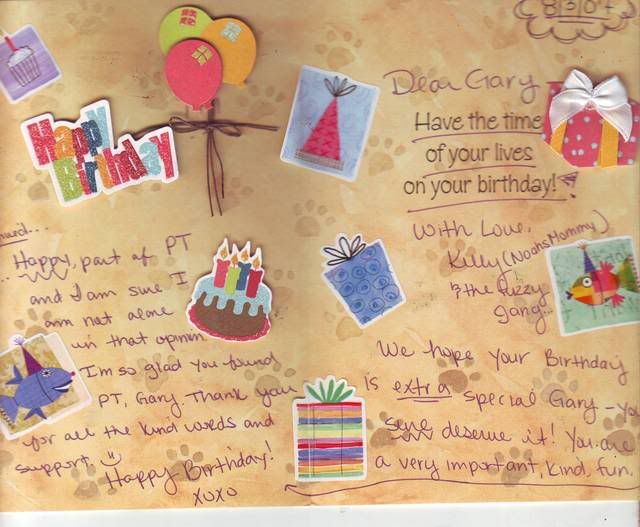 Happy
Birthday
Dear Gary
Have the time
of your lives
on your birthday!
With Love,
Kelly (NoahsMommy)
& the Fuzzy
gang...
We hope your Birthday
is extra special Gary - yo
sure deserve it! You are
a very important, kind, fun.
nued...
... Happy, part of PT
and I am sure I
am not alone
in that opinion.
I'm so glad you found
PT, Gary. Thank you
for all the kind words and
support.
Happy Birthday!
xoxo